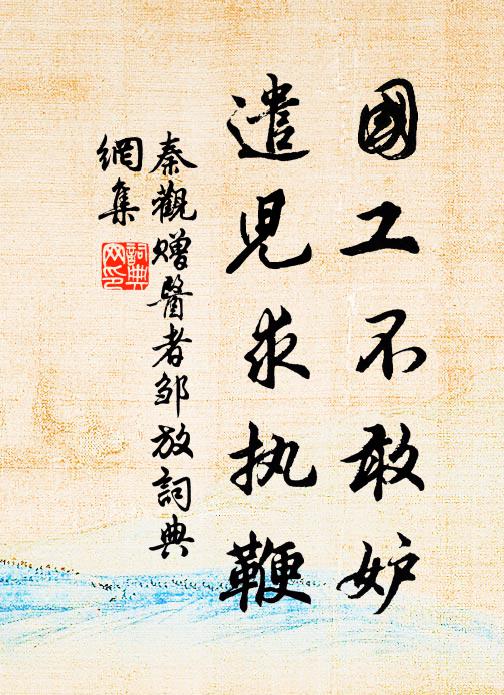 國工不敢妒
遣児求执鞭
秦觀赠醫者邹放詞典
網集
詞典
网印